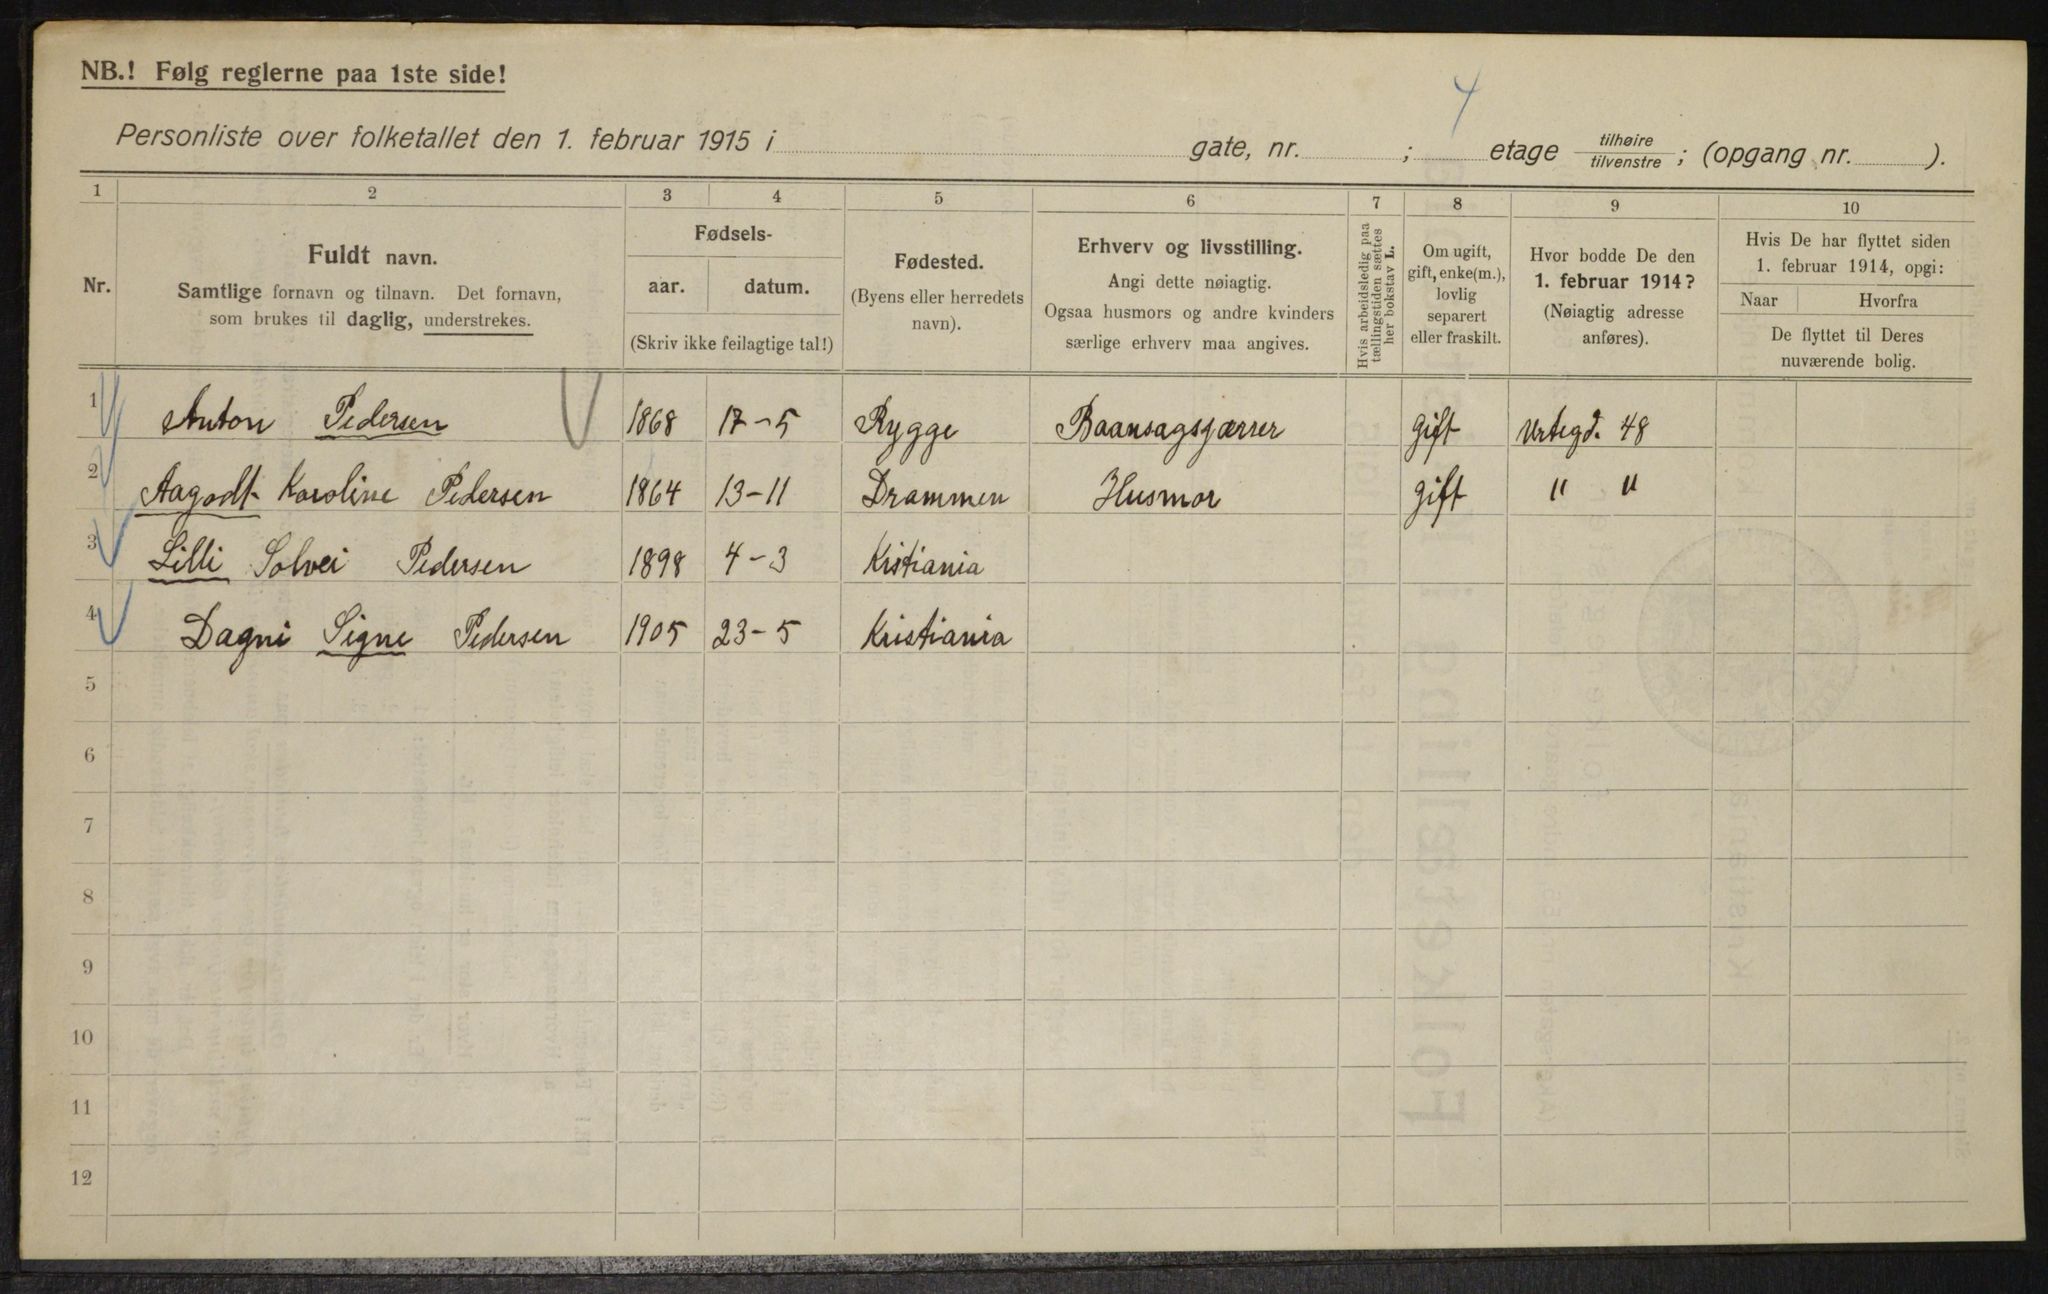 NB.! Følg reglerne paa 1ste side!
4
Personliste over folketallet den 1. februar 1915 i gate, nr. ; etage tilhøire/tilvenstre ; (opgang nr. ).
1 2 3 4 5 6 7 8 9 10
Nr.
Fuldt navn.
Samtlige fornavn og tilnavn. Det fornavn,
som brukes til daglig, understrekes.
Fødsels-
aar. datum.
(Skriv ikke feilagtige tal!)
Fødested.
(Byens eller herredets
navn).
Erhverv og livsstilling.
Angi dette nøiagtig.
Ogsaa husmors og andre kvinders
særlige erhverv maa angives.
Hvis arbeidsledig paa
tællingstiden sættes
her bokstav L.
Om ugift,
gift, enke(m.),
lovlig
separert
eller fraskilt.
Hvor bodde De den
1. februar 1914?
(Nøiagtig adresse
anføres).
Hvis De har flyttet siden
1. februar 1914, opgi:
Naar Hvorfra
De flyttet til Deres
nuværende bolig.
1 Anton Pedersen 1868 17-5 Rygge Baansagsfærrer gift Urtegd. 48
2 Aagodt Karoline Pedersen 1864 13-11 Drammen Husmor gift " "
3 Lilli Solvei Pedersen 1898 4-3 Kistiania
4 Dagni Signe Pedersen 1905 23-5 Kristiania
5
6
7
8
9
10
11
12